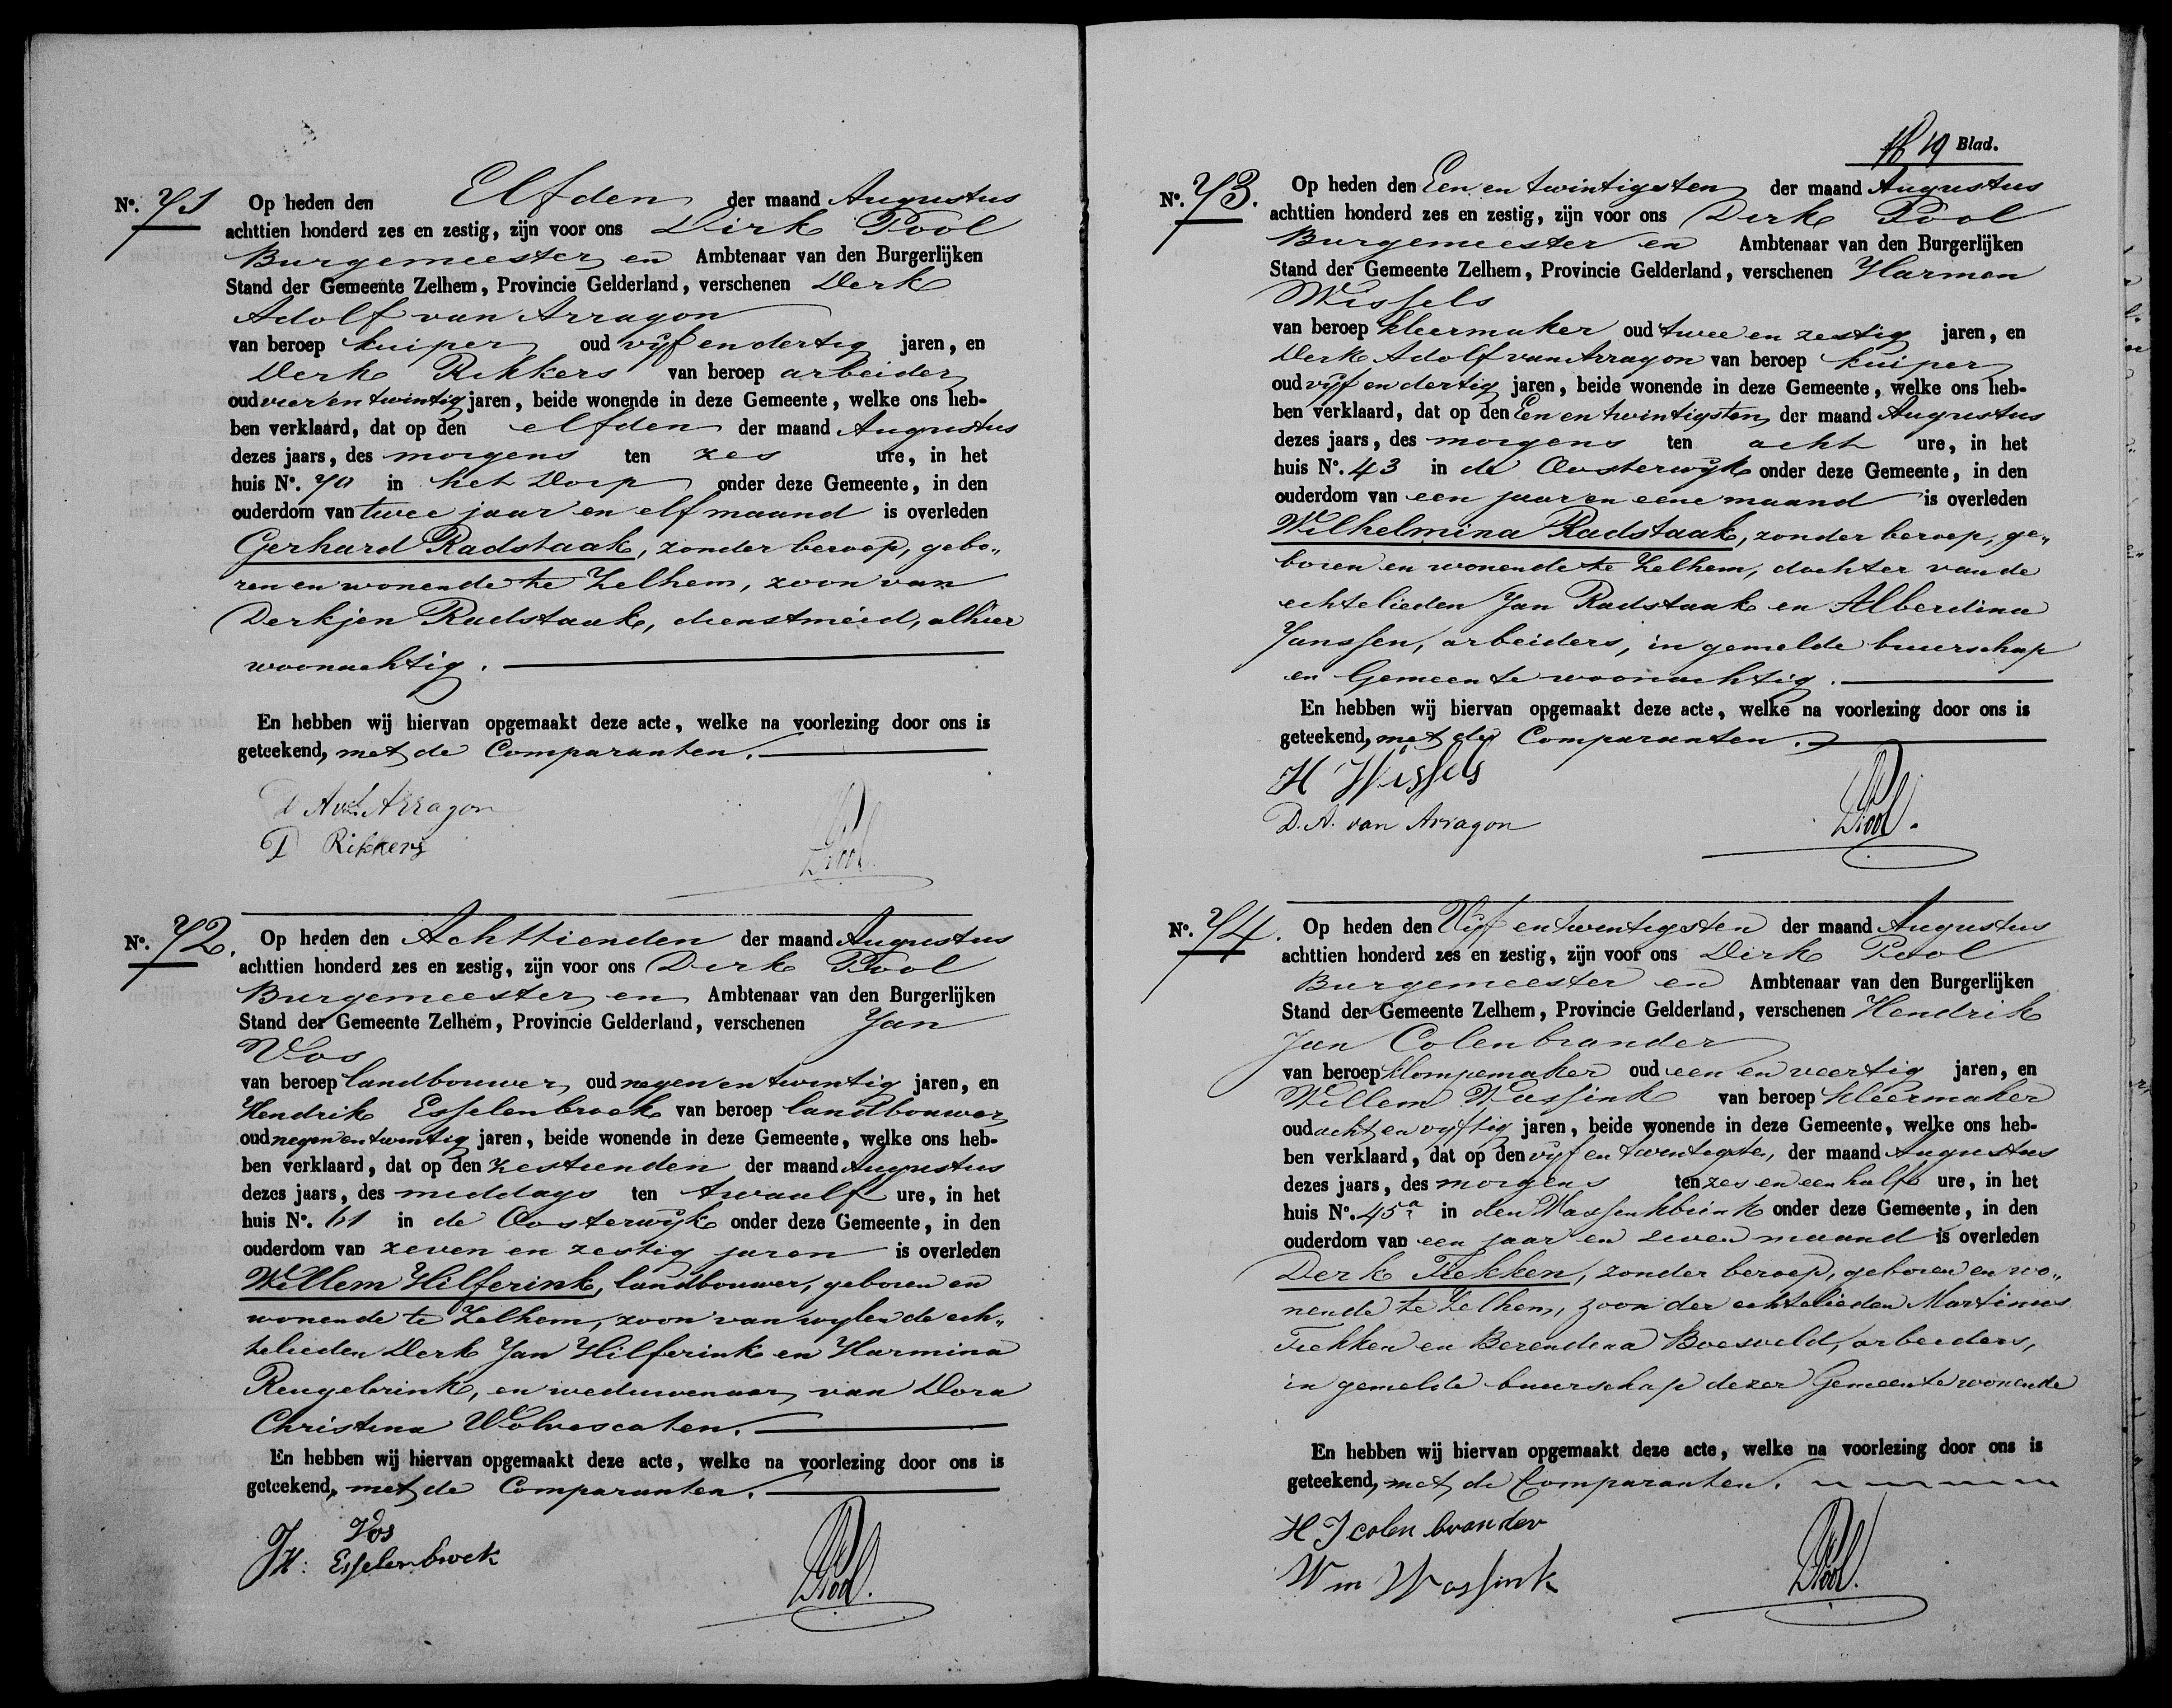 No. 71 Op heden den Elfden der maand Augustus
achttien honderd zes en zestig, zijn voor ons Dirk Pool
Burgemeester en Ambtenaar van den Burgerlijken
Stand der Gemeente Zelhem, Provincie Gelderland, verschenen Derk
Adolf van Arragon
van beroep kuiper oud vijf en dertig jaren, en
Derk Rikkers van beroep arbeider
oud vier en twintig jaren, beide wonende in deze Gemeente, welke ons heb-
ben verklaard, dat op den elfden der maand Augustus
dezes jaars, des morgens ten zes ure, in het
huis No. in het Dorp onder deze Gemeente, in den
ouderdom van twee jaar en elf maand is overleden
Gerhard Radstaak, zonder beroep, gebo„
ren en wonende te Zelhem, zoon van
Derkjen Radstaak, dienstmeid, alhier
woonachtig.
En hebben wij hiervan opgemaakt deze acte, welke na voorlezing door ons is
geteekend, met de Comparanten.
D A van Arragon
D Rikkers
DPool.
No. 72. Op heden den Achttienden der maand Augustus
achttien honderd zes en zestig, zijn voor ons Derk Pool
Burgemeester en Ambtenaar van den Burgerlijken
Stand der Gemeente Zelhem, Provincie Gelderland, verschenen Jan
Vos
van beroep landbouwer oud negen en twintig jaren, en
Hendrik Esselenbroek van beroep landbouwer
oud negen en twintig jaren, beide wonende in deze Gemeente, welke ons heb-
ben verklaard, dat op den zestienden der maand Augustus
dezes jaars, des middags ten twaalf ure, in het
huis No. 61 in de Oosterwijk onder deze Gemeente, in den
ouderdom van zeven en zestig jaren is overleden
Willem Hilferink, landbouwer, geboren en
wonende te Zelhem, zoon van wylen de ech„
telieden Derk Jan Hilferink en Harmina
Rengebrink, en weduwenaar van Dora
Christina Wolvescaten.
En hebben wij hiervan opgemaakt deze acte, welke na voorlezing door ons is
geteekend, met de Comparanten.
J Vos
H: Esselenbroek
DPool.
19 Blad.
No. 73. Op heden den Een en twintigsten der maand Augustus
achttien honderd zes en zestig, zijn voor ons Derk Pool
Burgemeester en Ambtenaar van den Burgerlijken
Stand der Gemeente Zelhem, Provincie Gelderland, verschenen Harmen
Wissels
van beroep kleermaker oud twee en zestig jaren, en
Derk Adolf van Arragon van beroep kuiper
oud vijf en dertig jaren, beide wonende in deze Gemeente, welke ons heb-
ben verklaard, dat op den Een en twintigsten der maand Augustus
dezes jaars, des morgens ten acht ure, in het
huis No. 43 in de Oosterwijk onder deze Gemeente, in den
ouderdom van een jaar en eene maand is overleden
Wilhelmina Radstaak, zonder beroep, ge„
boren en wonende te Zelhem, dochter van de
echtelieden Jan Radstaak en Alberdina
Janssen, arbeiders, in gemelde buurschap
en Gemeente woonachtig.
En hebben wij hiervan opgemaakt deze acte, welke na voorlezing door ons is
geteekend, met de Comparanten.
H Wissels
D. A. van Arragon
DPool.
No. 74. Op heden den Vijf en twintigsten der maand Augustus
achttien honderd zes en zestig, zijn voor ons Dirk Pool
Burgemeester en Ambtenaar van den Burgerlijken
Stand der Gemeente Zelhem, Provincie Gelderland, verschenen Hendrik
Jan Colenbrander
van beroep klompemaker oud een en veertig jaren, en
Willem Wassink van beroep kleermaker
oud acht en vyftig jaren, beide wonende in deze Gemeente, welke ons heb-
ben verklaard, dat op den vijf en twintigsten der maand Augustus
dezes jaars, des morgens ten zes en een half ure, in het
huis No. 45a in den Wassenkbrink onder deze Gemeente, in den
ouderdom van een jaar en zeven maand is overleden
Derk Tiekken, zonder beroep, geboren en wo„
nende te Zelhem, zoon der echtelieden Martinus
Tiekken en Berendina Boesveld, arbeiders,
in gemelde buurschap dezer Gemeente wonende
En hebben wij hiervan opgemaakt deze acte, welke na voorlezing door ons is
geteekend, met de Comparanten.
H J colenbrander
Wm Wassink
DPool.